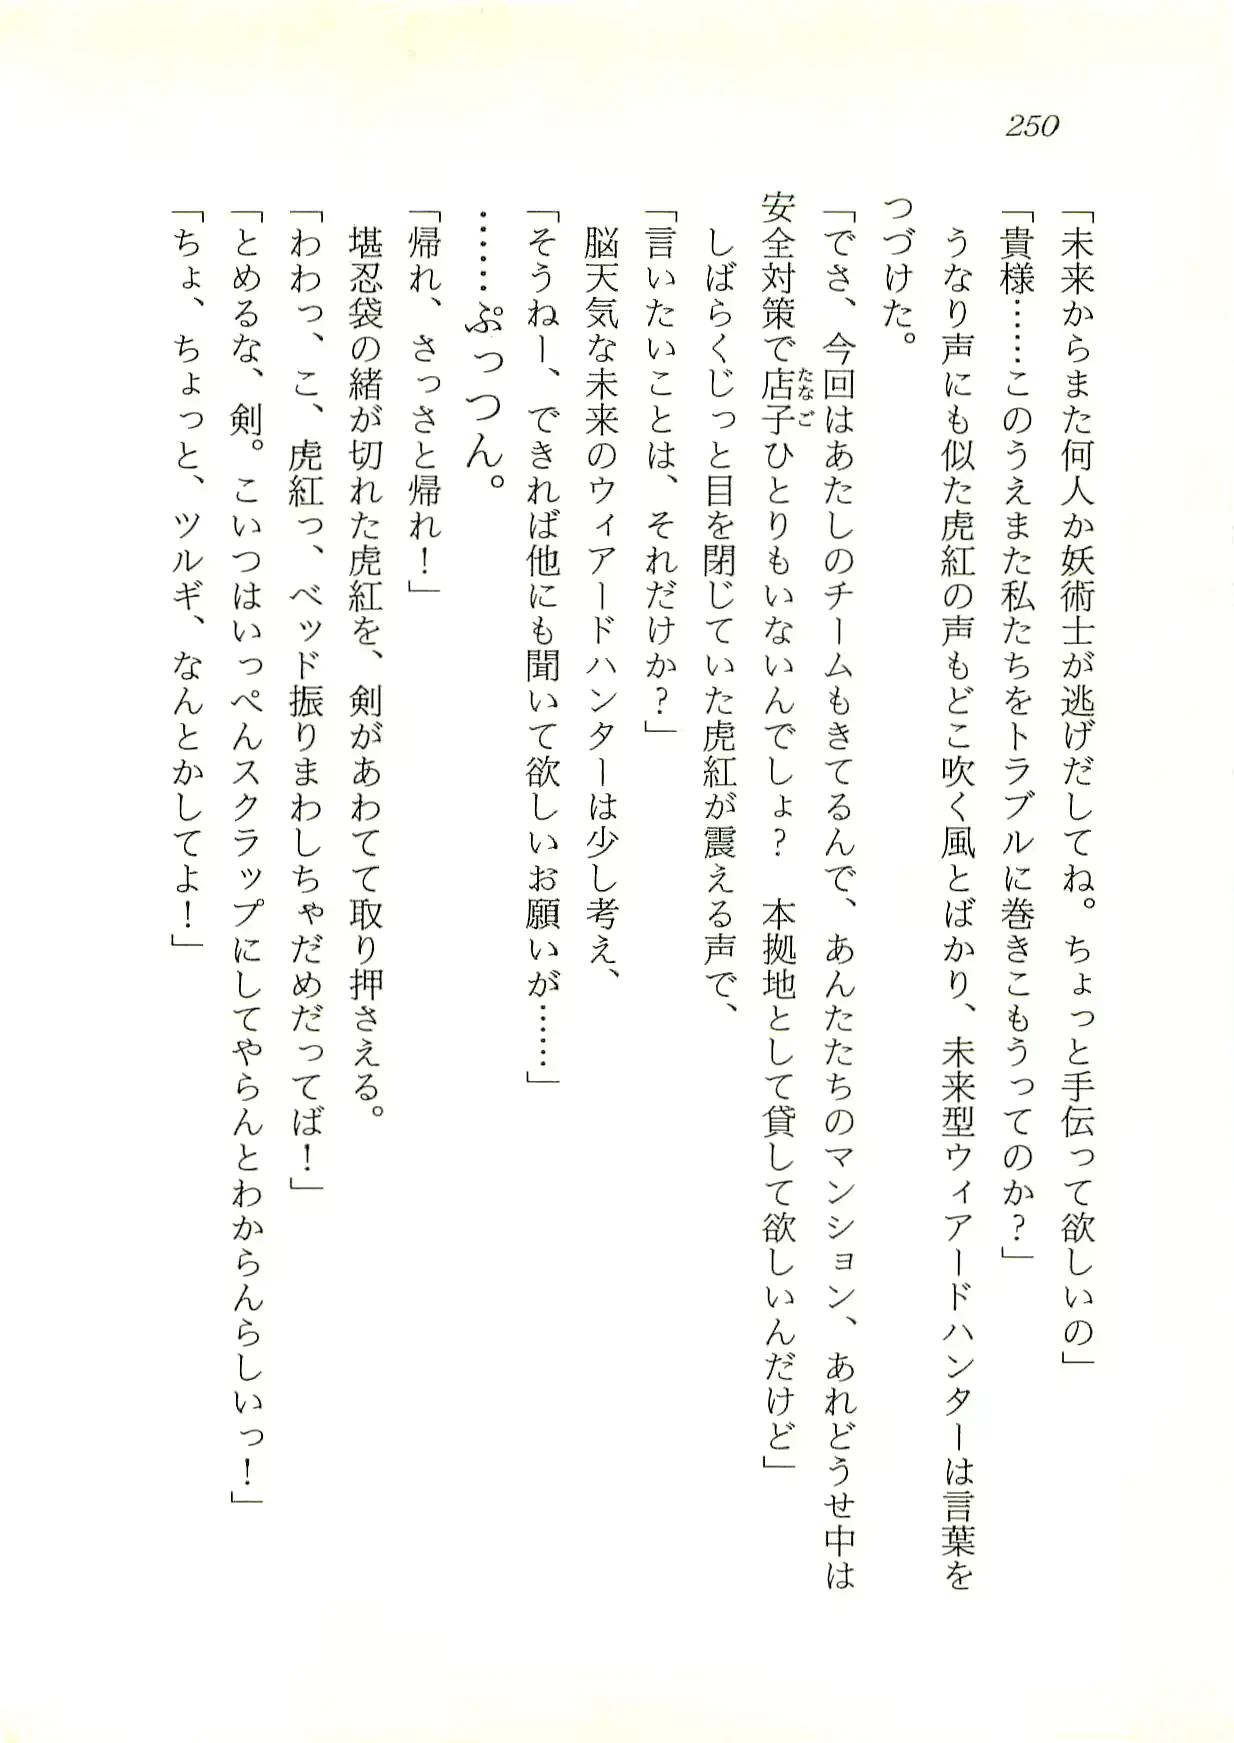 250
「未来からまた何人か妖術士が逃げだしてね。ちょっと手伝って欲しいの」
「貴様……このうえまた私たちをトラブルに巻きこもうってのか？」
うなり声にも似た虎紅の声もどこ吹く風とばかり、未来型ウィアードハンターは言葉を
つづけた。
「でさ、今回はあたしのチームもきてるんで、あんたたちのマンション、あれどうせ中は
安全対策で店子たなごひとりもいないんでしょ？　本拠地として貸して欲しいんだけど」
しばらくじっと目を閉じていた虎紅が震える声で、
「言いたいことは、それだけか？」
脳天気な未来のウィアードハンターは少し考え、
「そうねー、できれば他にも聞いて欲しいお願いが……」
……ぷっつん。
「帰れ、さっさと帰れ！」
堪忍袋の緒が切れた虎紅を、剣があわてて取り押さえる。
「わわっ、こ、虎紅っ、ベッド振りまわしちゃだめだってば！」
「とめるな、剣。こいつはいっぺんスクラップにしてやらんとわからんらしいっ！」
「ちょ、ちょっと、ツルギ、なんとかしてよ！」